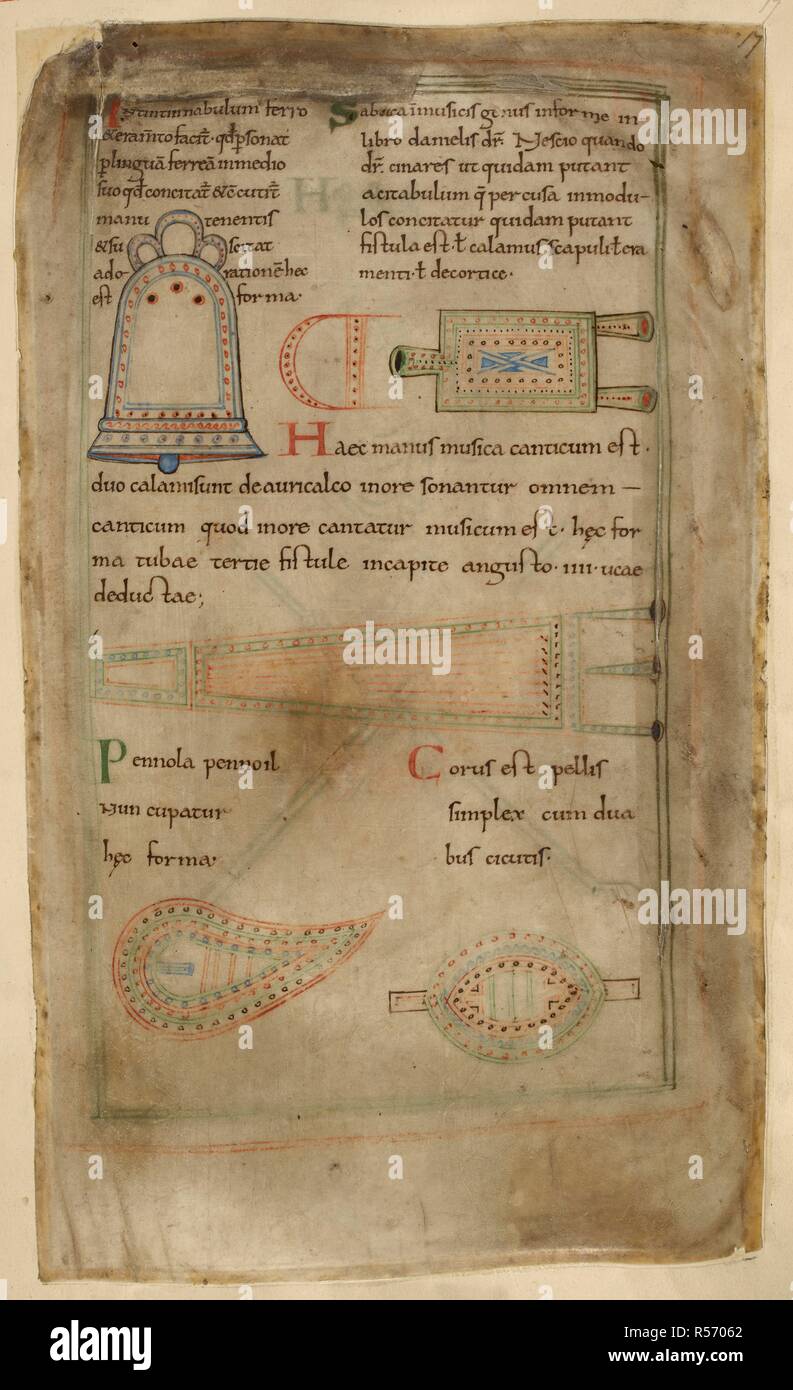 17
tintinnabulum ferro
&eram̄to facit̄· qđ p̱sonat
p̱ linguā ferreā inmedio
suo qđ concitat̄ &ēcutit̄
manu tenentis
&su sertat
ado rationē hec
est forma·
Sabuca īmusicis genus informe in
libro danielis dr̄. Nescio quando
dr̄. cinares ut quidam putant
acitabulum q̄ percusa inmodu-
los concitatur quidam putant
fistula est·ł calamus scapuli·ł era
menti·ł decortice·
Haec manus musica canticum est·
duo calami sunt deauricalco inore sonantur omnem —
canticum quod inore cantatur musicum est· hęc for
ma tubae tertie fistule incapite angusto· IIII· ucae
deductae;
Pennola pennoil
Nun cupatur
hęc forma·
Corus est pellis
simplex cum dua
bus cicutis·
alamy
alamy
Image ID: R57062
www.alamy.com